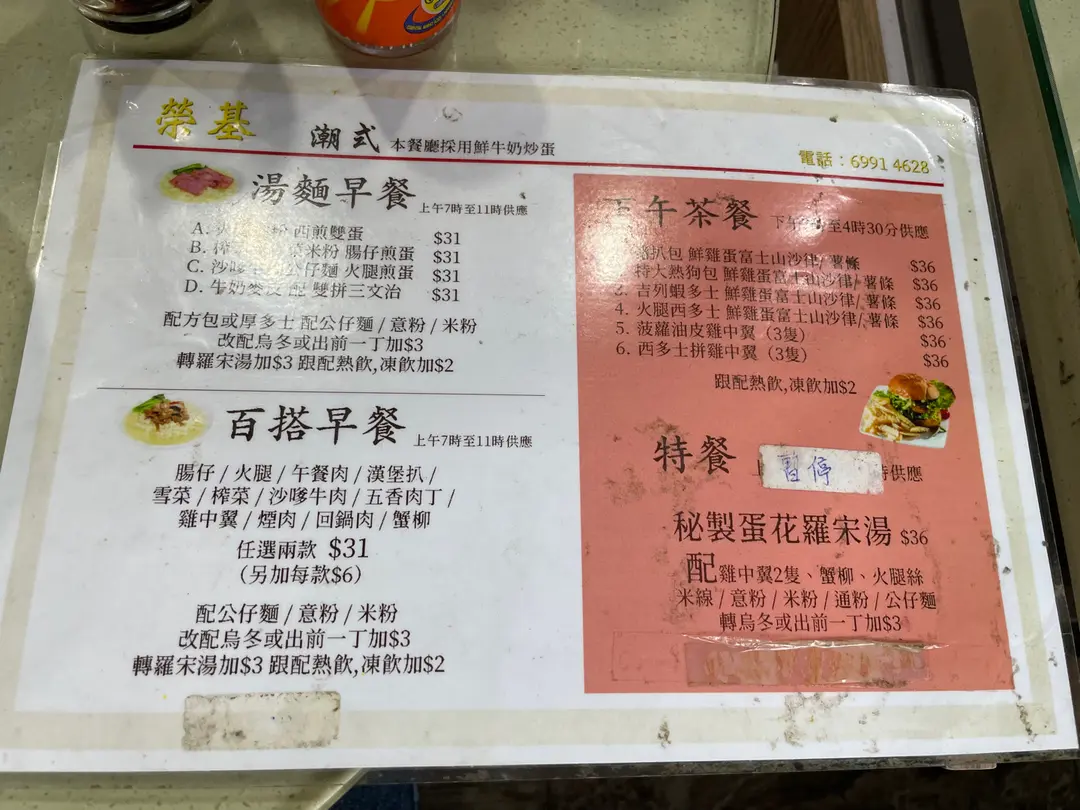 榮基 潮式 本餐廳採用鮮牛奶炒蛋
電話：6991 4628
湯麵早餐 上午7時至11時供應
A. 粉 西煎雙蛋 $31
B. 榨 米粉 腸仔煎蛋 $31
C. 沙嗲 公仔麵 火腿煎蛋 $31
D. 牛奶麥 配 雙拼三文治 $31
配方包或厚多士 配公仔麵 / 意粉 / 米粉
改配烏冬或出前一丁加$3
轉羅宋湯加$3 跟配熱飲,凍飲加$2
百搭早餐 上午7時至11時供應
腸仔 / 火腿 / 午餐肉 / 漢堡扒 /
雪菜 / 榨菜 / 沙嗲牛肉 / 五香肉丁 /
雞中翼 / 煙肉 / 回鍋肉 / 蟹柳
任選兩款 $31
（另加每款$6）
配公仔麵 / 意粉 / 米粉
改配烏冬或出前一丁加$3
轉羅宋湯加$3 跟配熱飲,凍飲加$2
下午茶餐 下午 至4時30分供應
扒包 鮮雞蛋富士山沙律/薯條 $36
特大熱狗包 鮮雞蛋富士山沙律/薯條 $36
3. 吉列蝦多士 鮮雞蛋富士山沙律/薯條 $36
4. 火腿西多士 鮮雞蛋富士山沙律/薯條 $36
5. 菠蘿油皮雞中翼（3隻） $36
6. 西多士拼雞中翼（3隻） $36
跟配熱飲,凍飲加$2
特餐 上 暫停 時供應
秘製蛋花羅宋湯 $36
配雞中翼2隻、蟹柳、火腿絲
米線 / 意粉 / 米粉 / 通粉 / 公仔麵
轉烏冬或出前一丁加$3